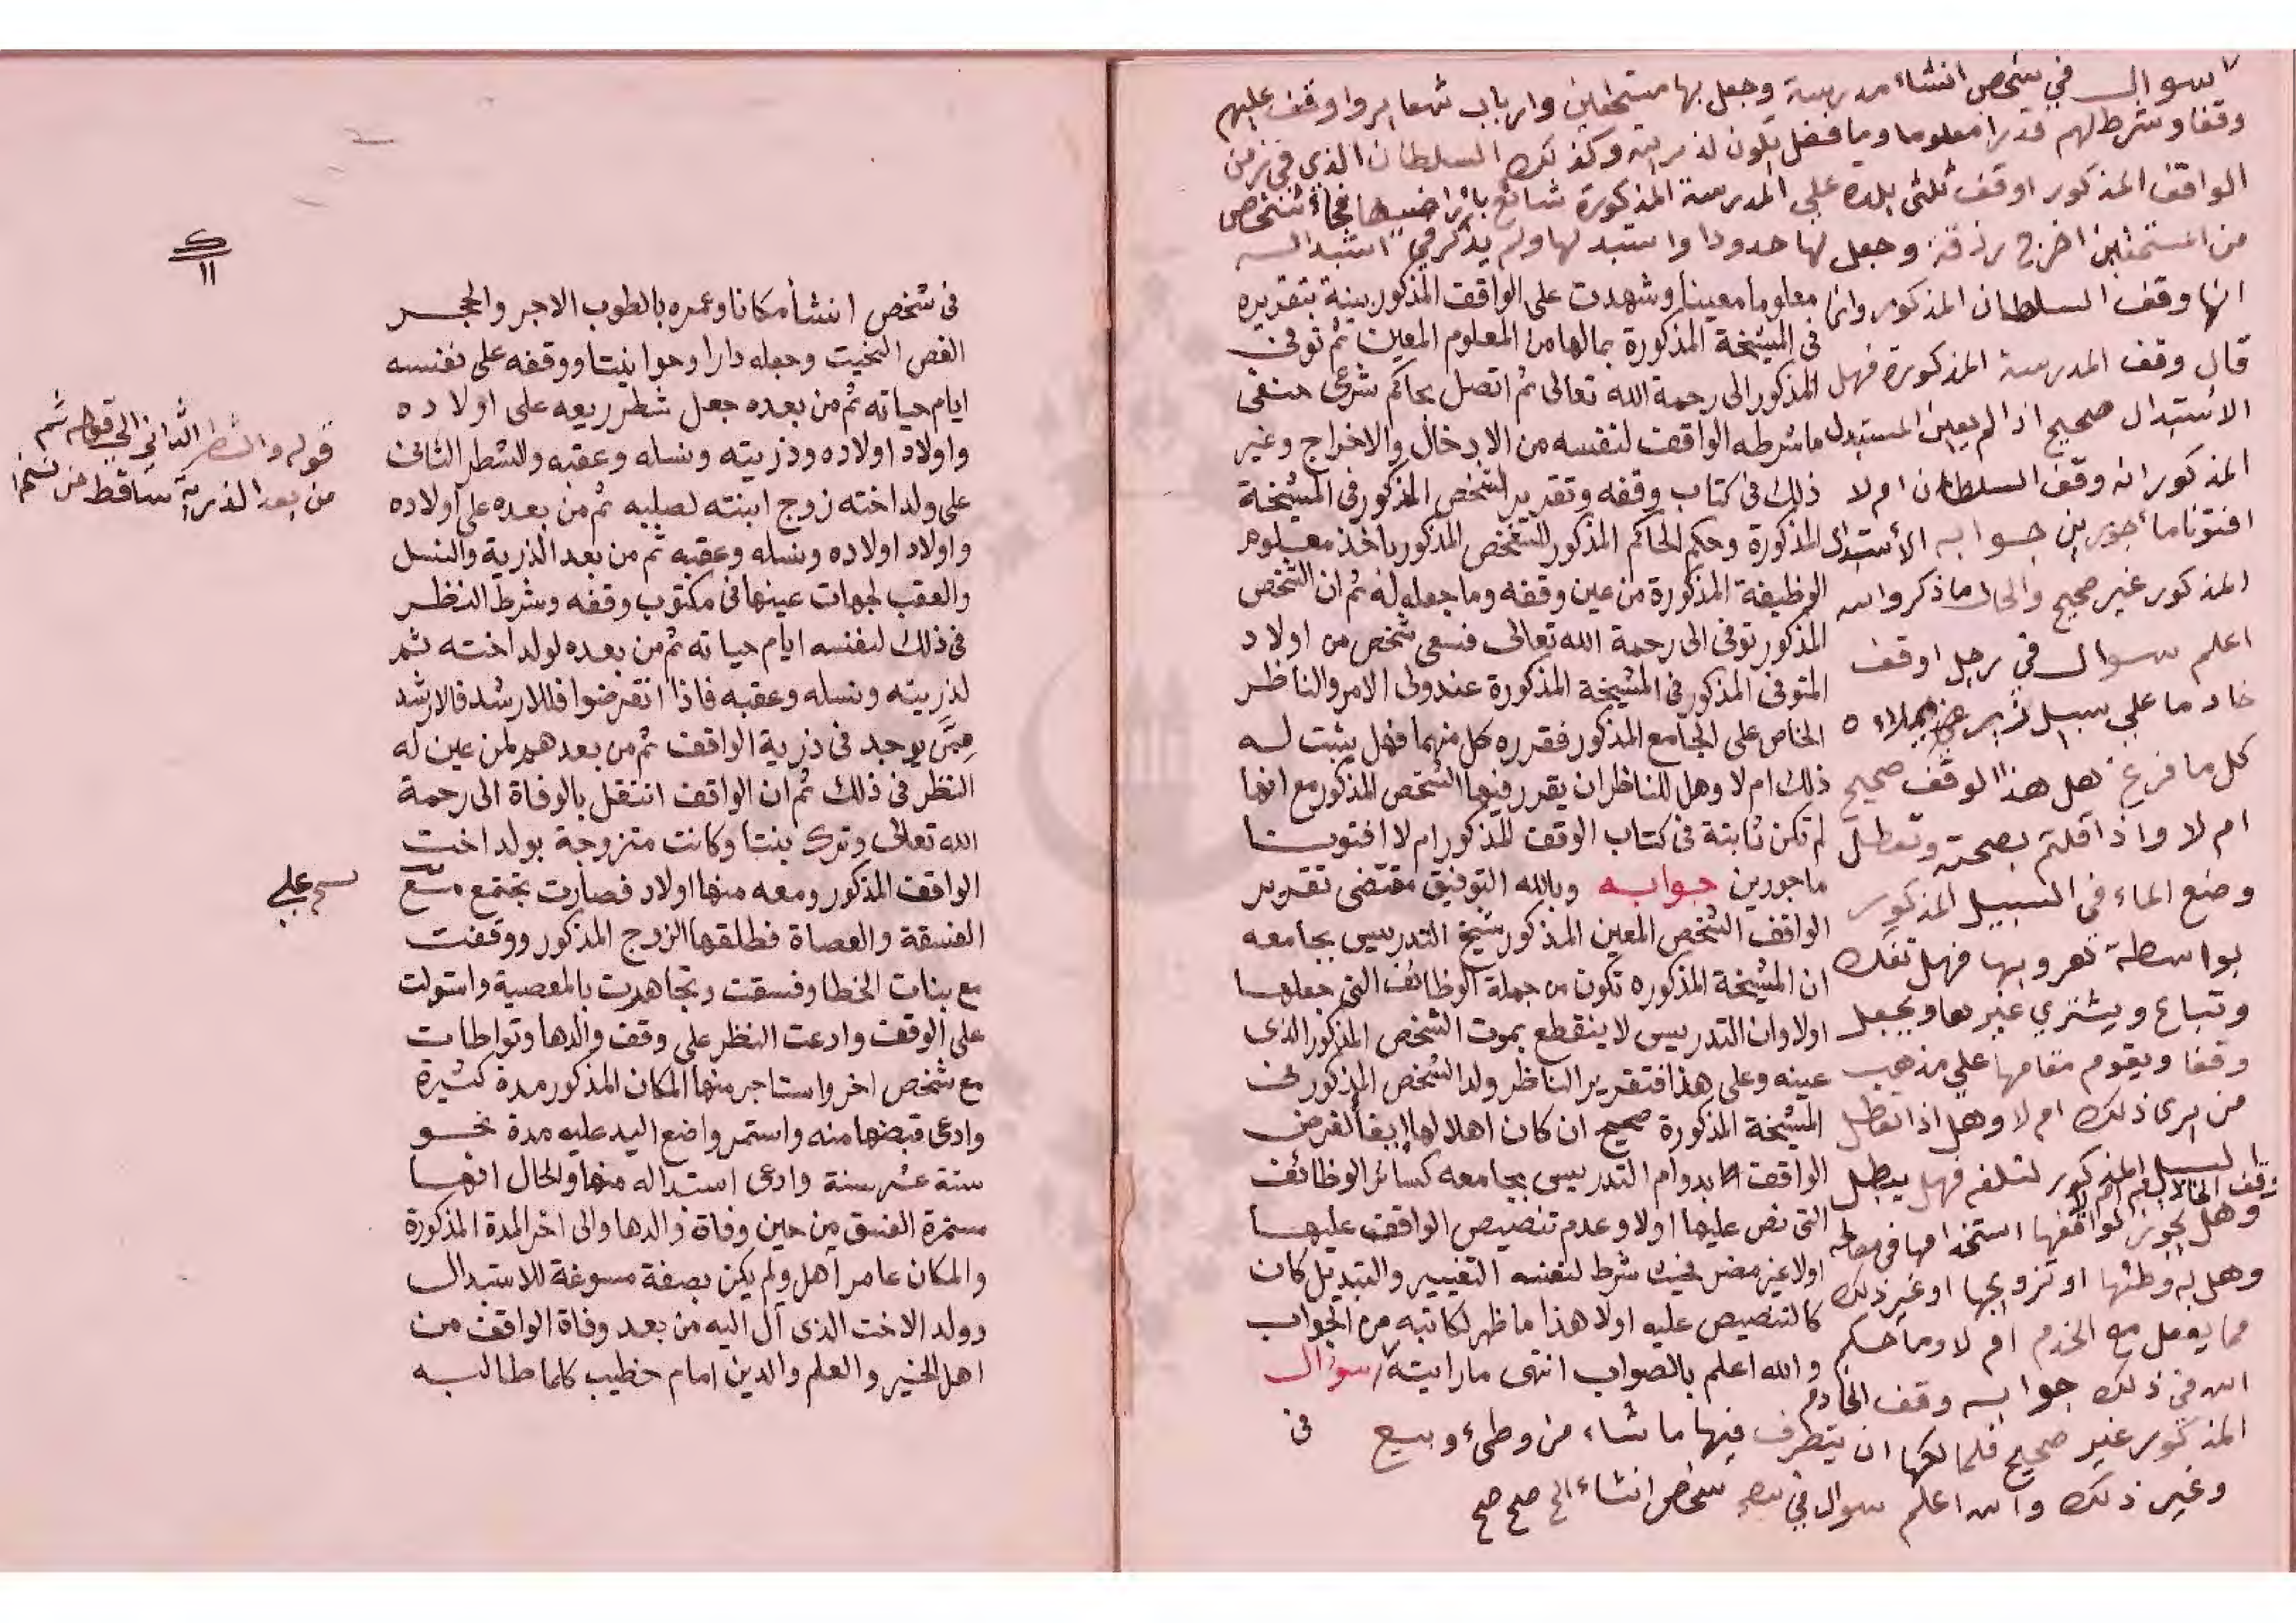 سوال في شخص انشاء مدرسة وجعل بها مستحقين وارباب شعاير واوقف عليهم
وقفا وشرط لهم قدرا معلوما وما فضل يكون لذريته وكذلك السلطان الذي في زمن
الواقف المذكور اوقف ثلثي بلده على المدرسة المذكورة شائع باراضيها فجاء شخص
من المستحقين اخرج رزقة وجعل لها حدودا واستبدلها ولم يذكر في استبداله
انها وقف السلطان المذكور وانما
قال وقف المدرسة المذكورة فهل
الاستبدال صحيح اذا لم يعين المستبدل
المذكور انه وقف السلطان ام لا
افتونا مأجورين جوابه الأستبدال
المذكور غير صحيح والحال ما ذكر والله
اعلم سوال في رجل اوقف
خادما على سبيل
كل ما فرغ فهل هذا الوقف صحيح
ام لا واذا قلتم بصحته وتعطل
وضع الماء في السبيل المذكور
بواسطة هروبها فهل تفك
وتباع ويشتري غيرها ويجعل
وقفا ويقوم مقامها على مذهب
من يرى ذلك ام لا وهل اذا تعطل
السبيل المذكور لتلفه فهل يبطل
وقف الخادم ام لا
وهل يجوز لواقفها استخدامها في مصالحه
وهل له وطئها او تزويجها او غير ذلك
مما يفعل مع الخدم ام لا وما حكم
الله في ذلك جوابه وقف الخادم
المذكور غير صحيح فلمالكها ان يتصرف فيها ما شاء من وطيء وبيع
وغير ذلك والله اعلم سوال في شخص انشاء الخ صح صح
معلوما معينا وشهدت على الواقف المذكور بينة بتقديره
في المشيخة المذكورة بمالها من المعلوم المعين ثم توفى
المذكور الى رحمة الله تعالى ثم اتصل بحاكم شرعى حنفى
ما شرطه الواقف لنفسه من الادخال والاخراج وغير
ذلك في كتاب وقفه وتقدير الشخص المذكور في المشيخة
المذكورة وحكم الحاكم المذكور للشخص المذكور باخذ معلوم
الوظيفة المذكورة من عين وقفه وما جعله له ثم ان الشخص
المذكور توفى الى رحمة الله تعالى فسعى شخص من اولاد
المتوفى المذكور في المشيخة المذكورة عند ولى الامر والناظر
الخاص على الجامع المذكور فقرره كل منهما فهل يثبت له
ذلك ام لا وهل للناظر ان يقرر فيها الشخص المذكور مع انها
لم تكن ثابتة في كتاب الوقف المذكور ام لا افتونا
ماجورين جوابه وبالله التوفيق مقتضى تقرير
الواقف الشخص المعين المذكور شيخ التدريس بجامعه
ان المشيخة المذكوره تكون من جملة الوظائف التى جعلها
اولا وان التدريس لا ينقطع بموت الشخص المذكور الذى
عينه وعلى هذا فتقرير الناظر ولد الشخص المذكور فى
المشيخة المذكورة صحيح ان كان اهلا لها ابقاء لغرض
الواقف بدوام التدريس بجامعه كسائر الوظائف
التى نص عليها اولا وعدم تنصيص الواقف عليها
اولا غير مضر فحيث شرط لنفسه التغيير والتبديل كان
كالتنصيص عليه اولا هذا ما ظهر لكاتبه من الجواب
والله اعلم بالصواب انتهى ما رايته سؤال
فى
ك
١١
فى شخص انشأ مكانا وعمره بالطوب الاجر والحجر
الفص النحيت وجعله دارا وحوانيتا ووقفه على نفسه
ايام حياته ثم من بعده جعل شطر ريعه على اولاده
واولاد اولاده وذريته ونسله وعقبه والشطر الثانى
على ولد اخته زوج ابنته لصلبه ثم من بعده على اولاده
واولاد اولاده ونسله وعقبه ثم من بعد الذرية والنسل
والعقب لجهات عينها فى مكتوب وقفه وشرط النظر
فى ذلك لنفسه ايام حياته ثم من بعده لولد اخته ثم
لذريته ونسله وعقبه فاذا انقرضوا فللارشد فالارشد
ممن يوجد فى ذرية الواقف ثم من بعدهم لمن عين له
النظر فى ذلك ثم ان الواقف انتقل بالوفاة الى رحمة
الله تعالى وترك بنتا وكانت متزوجة بولد اخت
الواقف المذكور ومعه منها اولاد فصارت تجتمع مع
الفسقة والعصاة فطلقها الزوج المذكور ووقفت
مع بنات الخطا وفسقت وتجاهرت بالمعصية واستولت
على الوقف وادعت النظر على وقف والدها وتواطات
مع شخص اخر واستاجر منها المكان المذكور مدة كثيرة
وادعى قبضها منه واستمر واضع اليد عليه مدة نحو
ستة عشر سنة وادعى استبداله منها والحال انها
مستمرة الفسق من حين وفاة والدها والى اخر المدة المذكورة
والمكان عامر آهل ولم يكن بصفة مسوغة للاستبدال
وولد الاخت الذى آل اليه من بعد وفاة الواقف من
اهل الخير والعلم والدين امام خطيب كلما طالبه
قوله والشطر الثاني الى قوله ثم
من بعد الذرية ساقط من نسخة